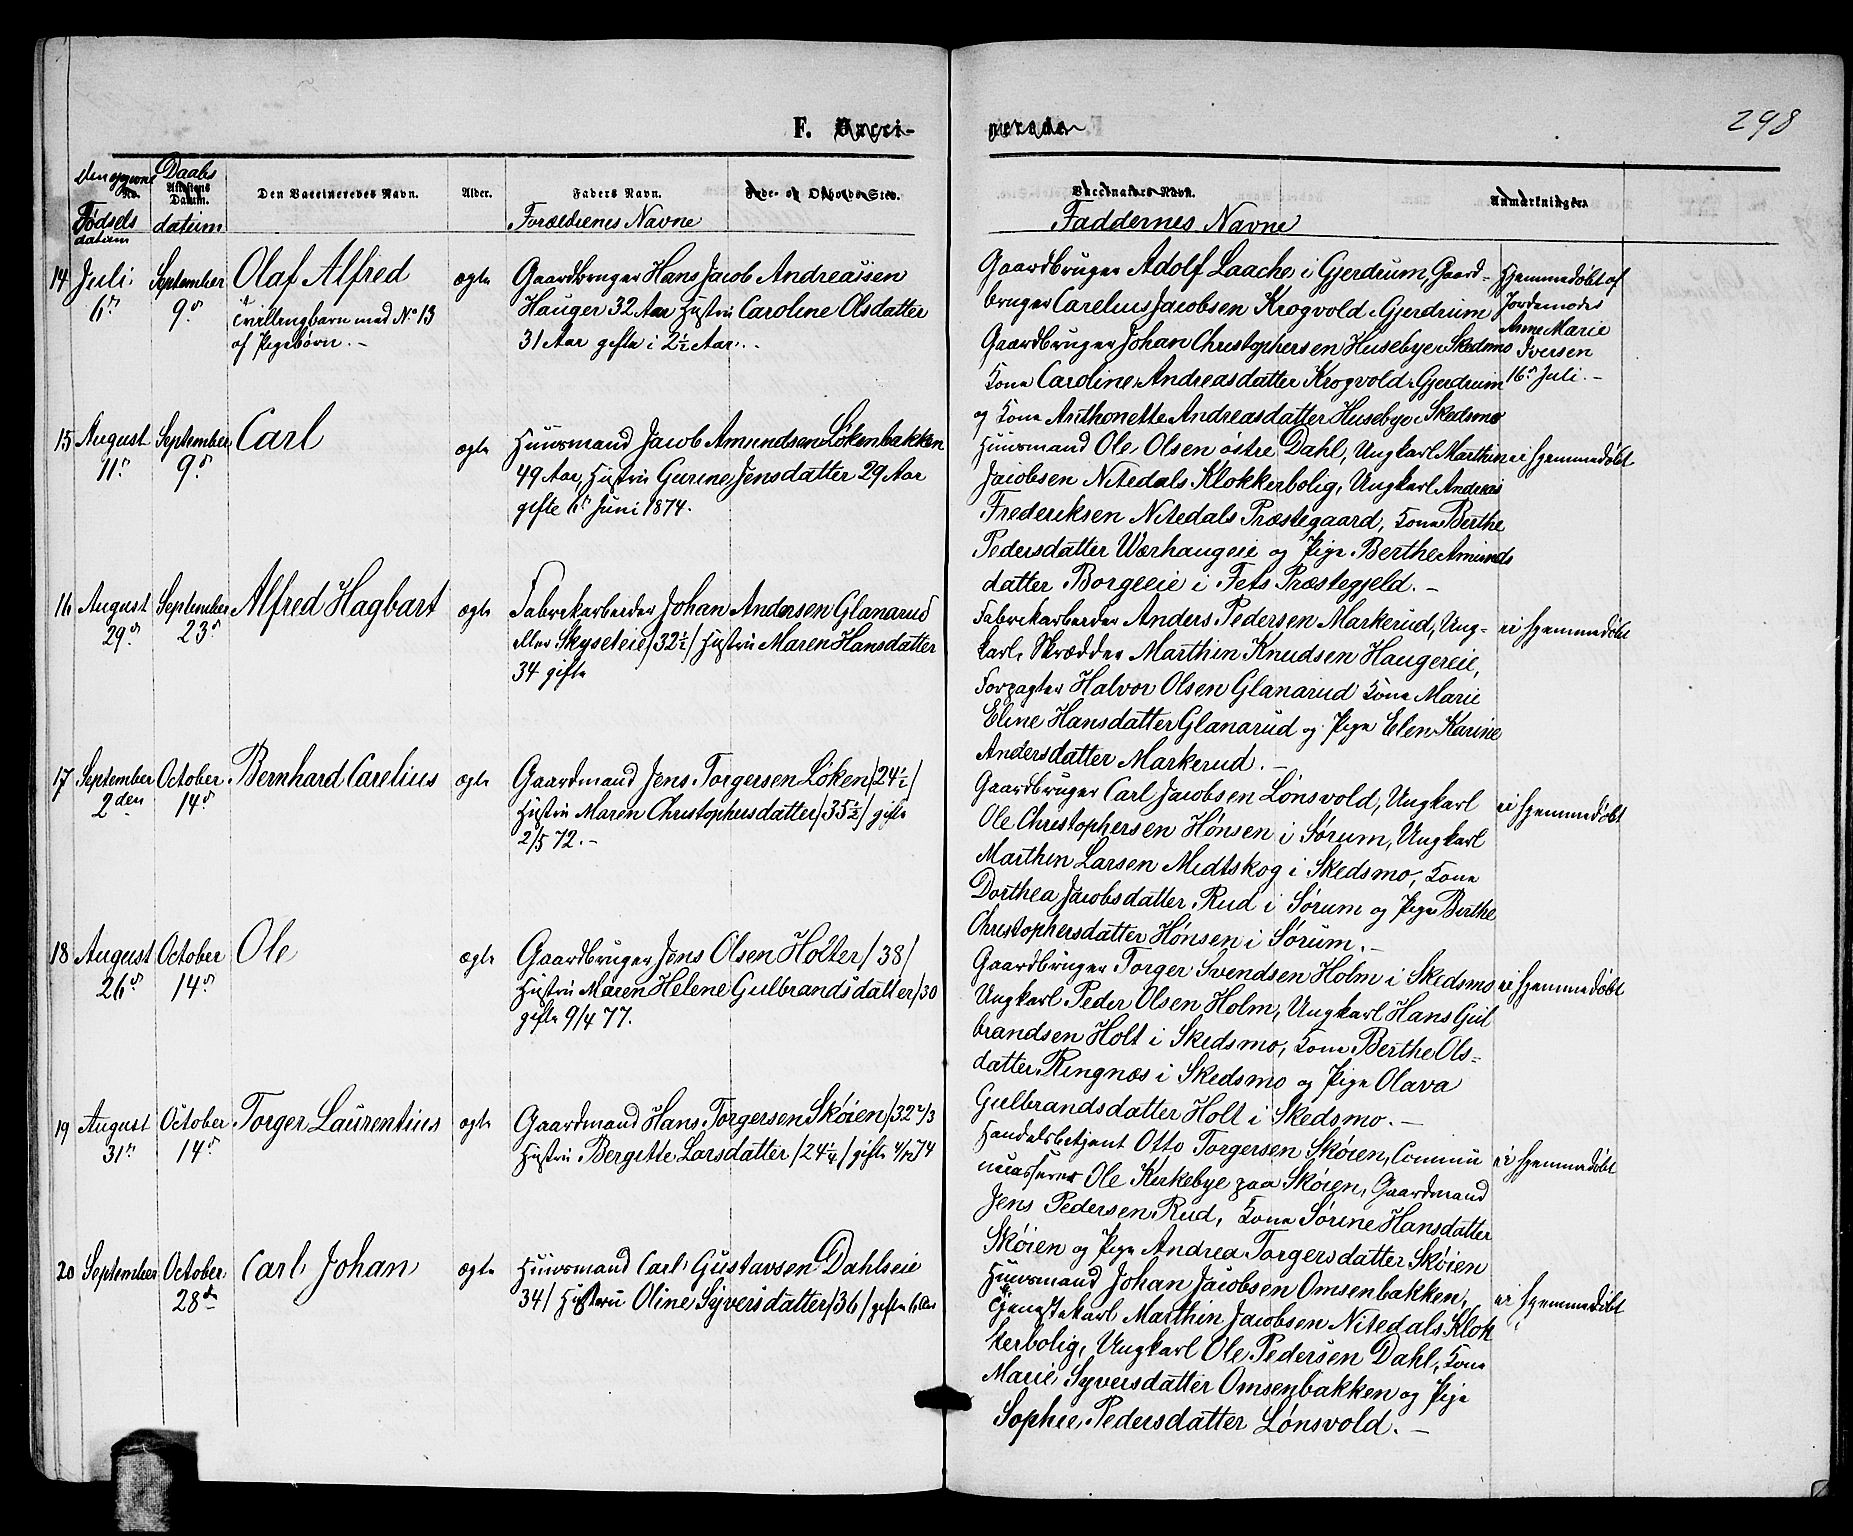 298
F. Vacci-
nerede
Den opgivne Daabs
No. Attestens Datum. Den Vaccineredes Navn. Alder. Faders Navn. Føde- og Opholds-Sted. Vaccinators Navn. Anmærkninger.
Fødsels datum datum Forældrenes Navne Faddernes Navne
14 Juli September Olaf Alfred ægte Gaardbruger Hans Jacob Andreassen
6 9 tvillingbarn med No 13 Hauger 32 Aar Hustru Caroline Olsdatter
af Pigebørn.- 31 Aar gifte i 2½ Aar.-
Gaardbruger Adolf Laache i Gjerdrum, Gaard-
bruger Carelius Jacobsen Krogvold i Gjerdrum
Gaardbruger Johan Christophersen Husebye i Skedsmo
Kone Caroline Andreasdatter Krogvold i Gjerdrum
og Kone Anthonette Andreasdatter Husebye i Skedsmo
Hjemmedøbt af
Jordemoder
Anne Marie
Iversen
16 Juli.-
15 August September Carl ægte Huusmand Jacob Amundsen Løkenbakken
11 9 49 Aar, Hustru Gurine Jensdatter 29 Aar
gifte 6 Juni 1874.
Huusmand Ole Olsen østre Dahl, Ungkarl Marthin
Jacobsen Nitedals Klokkerbolig, Ungkarl Andreas
Frederiksen Nitedals Præstegaard, Kone Berthe
Pedersdatter Wærhaugeie og Pige Berthe Amunds
datter Borgeeie i Fets Præstegjeld.-
ei hjemmedøbt
16 August September Alfred Hagbart ægte Fabrikarbeider Johan Andersen Glanarud
29 23 eller Skyseteie/32½/ Hustru Maren Hansdatter
34 gifte
Fabrikarbeider Anders Pedersen Markerud, Ung-
karl, Skrædder Marthin Knudsen Haugereie,
Forpagter Halvor Olsen Glanarud Kone Marie
Eline Hansdatter Glanarud og Pige Elen Karine
Andersdatter Markerud.-
ei hjemmedøbt
17 September October Bernhard Carelius ægte Gaardmand Jens Torgersen Løken/24½/
2den 14 Hustru Maren Christophersdatter/35½/ gifte
2/5 72.-
Gaardbruger Carl Jacobsen Lønsvold, Ungkarl
Ole Christophersen Hønsen i Sørum, Ungkarl
Marthin Larsen Midtskog i Skedsmo, Kone
Dorthea Jacobsdatter Rud i Sørum og Pige Berthe
Christophersdatter Hønsen i Sørum.-
ei hjemmedøbt
18 August October Ole ægte Gaardbruger Jens Olsen Holter/38/
26 14 Hustru Maren Helene Gulbrandsdatter/30
gifte 9/4 77.
Gaardbruger Torger Svendsen Holm i Skedsmo
Ungkarl Peder Olsen Holm, Ungkarl Hans Gul
brandsen Holt i Skedsmo, Kone Berthe Ols-
datter Ringnæs i Skedsmo og Pige Olava
Gulbrandsdatter Holt i Skedsmo.-
ei hjemmedøbt
19 August October Torger Laurentius ægte Gaardmand Hans Torgersen Skøien/32 2/3
31 14 Hustru Bergitte Larsdatter/24¼/ gifte 4/12 74
Handelsbetjent Otto Torgersen Skøien, Commu
necasserer Ole Kirkebye paa Skøien, Gaardmand
Jens Pedersen Rud, Kone Sørine Hansdatter
Skøien og Pige Andrea Torgersdatter Skøien
ei hjemmedøbt
20 September October Carl Johan ægte Huusmand Carl Gustavsen Dahlseie
28de 34/ Hustru Oline Syversdatter/36/ gifte 6 Aar
Huusmand Johan Jacobsen Omsenbakken,
Tjenestekarl Marthin Jacobsen Nitedals Klok
kerbolig, Ungkarl Ole Pedersen Dahl, Kone
Marie Syversdatter Omsenbakken og Pige
Sophie Pedersdatter Lønsvold.-
ei hjemmedøbt